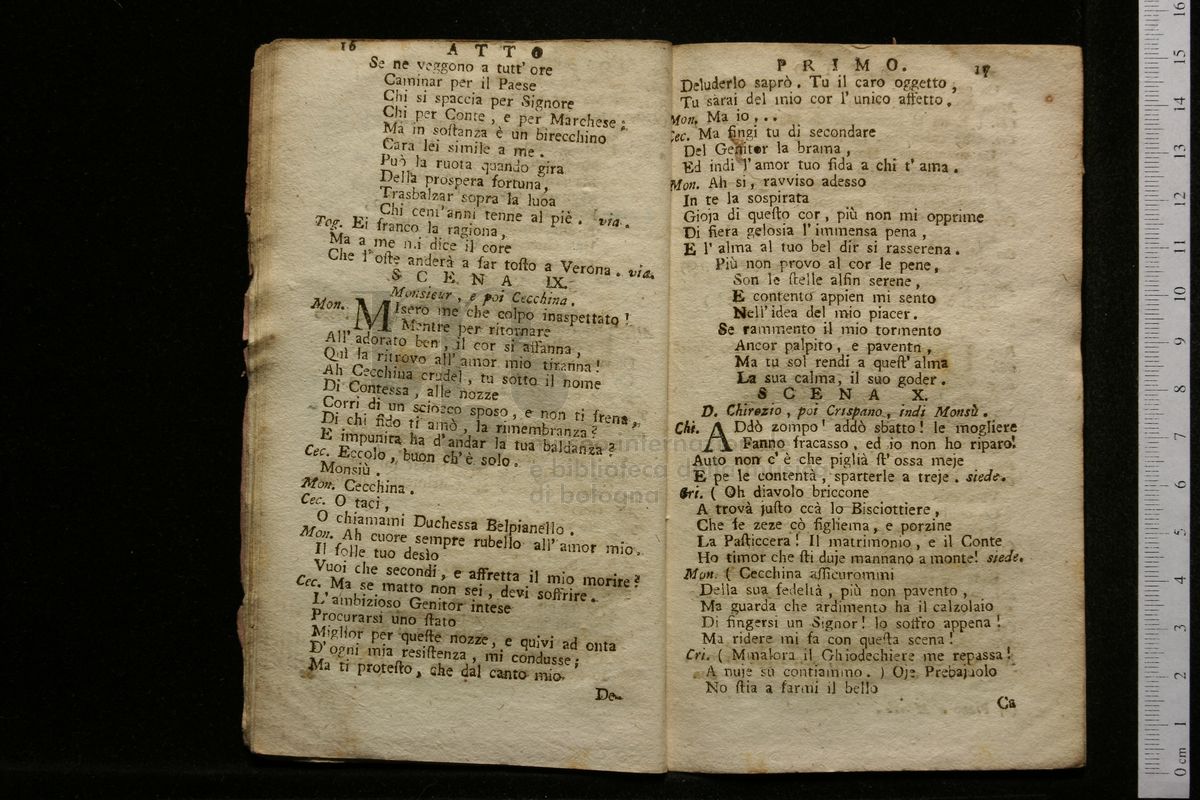 16 ATTO
Se ne veggono a tutt' ore
Caminar per il Paese
Chi si spaccia per Signore
Chi per Conte, e per Marchese;
Ma in soſtanza è un birecchino
Cara lei simile a me.
Può la ruota quando gira
Della prospera fortuna,
Trasbalzar sopra la luoa
Chi cent'anni tenne al piè. via.
Tog. Ei franco la ragiona,
Ma a me mi dice il core
Che l'oſte anderà a far toſto a Verona. via.
SCENA IX.
Monsieur, e poi Cecchina.
Mon. MIsero me che colpo inaspettato!
Mentre per ritornare
All' adorato ben, il cor si affanna,
Quì la ritrovo all' amor mio tiranna!
Ah Cecchina crudel, tu sotto il nome
Di Contessa, alle nozze
Corri di un sciocco sposo, e non ti frena,
Di chi fido ti amò, la rimembranza?
E impunita ha d'andar la tua baldanza?
Cec. Eccolo, buon ch'è solo.
Monsiù.
Mon. Cecchina.
Cec. O taci,
O chiamami Duchessa Belpianello.
Mon. Ah cuore sempre rubello all' amor mio.
Il folle tuo desìo
Vuoi che secondi, e affretta il mio morire?
Cec. Ma se matto non sei, devi soffrire.
L'ambizioso Genitor intese
Procurarsi uno ſtato
Miglior per queſte nozze, e quivi ad onta
D'ogni mia resiſtenza, mi condusse;
Ma ti proteſto, che dal canto mio
De-
PRIMO. 17
Deluderlo saprò. Tu il caro oggetto,
Tu sarai del mio cor l' unico affetto.
Mon. Ma io...
Cec. Ma fingi tu di secondare
Del Genitor la brama,
Ed indi l'amor tuo fida a chi t' ama.
Mon. Ah si, ravviso adesso
In te la sospirata
Gioja di queſto cor, più non mi opprime
Di fiera gelosia l' immensa pena,
E l' alma al tuo bel dir si rasserena.
Più non provo al cor le pene,
Son le ſtelle alfin serene,
E contento appien mi sento
Nell' idea del mio piacer.
Se rammento il mio tormento
Ancor palpito, e pavento,
Ma tu sol rendi a queſt' alma
La sua calma, il suo goder.
SCENA X.
D. Chirozio, poi Crispano, indi Monsù.
Chi. ADdò zompo! addò sbatto! le mogliere
Fanno fracasso, ed io non ho riparo!
Auto non c' è che piglià ſt' ossa meje
E pe le contentà, sparterle a treje. siede.
Cri. ( Oh diavolo briccone
A trovà juſto ccà lo Bisciottiere,
Che fe zeze cò figliema, e porzine
La Paſticcera! Il matrimonio, e il Conte
Ho timor che ſti duje mannano a monte! siede.
Mon. ( Cecchina aſſicurommi
Della sua fedeltà, più non pavento,
Ma guarda che ardimento ha il calzolaio
Di fingersi un Signor! Io soffro appena!
Ma ridere mi fa con queſta scena!
Cri. ( Mmalora il Ghiodechiere me repassa!
A nuje sù contiammo. ) Oje Prebajuolo
No ſtia a farmi il bello
Ca
museo internazionale
e biblioteca della musica
di bologna
0 cm 1 2 3 4 5 6 7 8 9 10 11 12 13 14 15 16